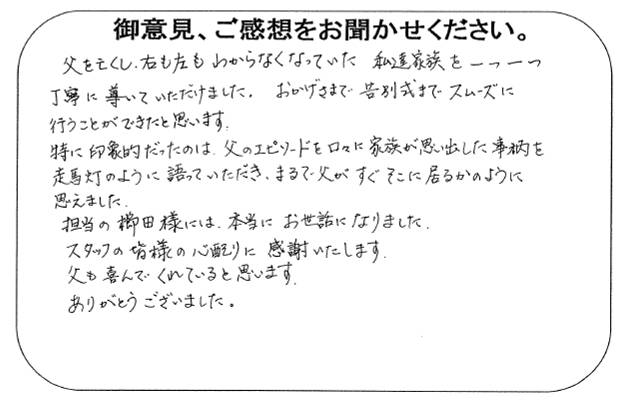 御意見、ご感想をお聞かせください。
父を亡くし、右も左もわからなくなっていた 私達家族を一つ一つ
丁寧に導いていただけました。 おかげさまで告別式までスムーズに
行うことができたと思います。
特に印象的だったのは、父のエピソードを口々に家族が思い出した事柄を
走馬灯のように語っていただき、まるで父がすぐそこに居るかのように
思えました。
担当の櫛田様には、本当にお世話になりました。
スタッフの皆様の心配りに感謝いたします。
父も喜んでくれていると思います。
ありがとうございました。